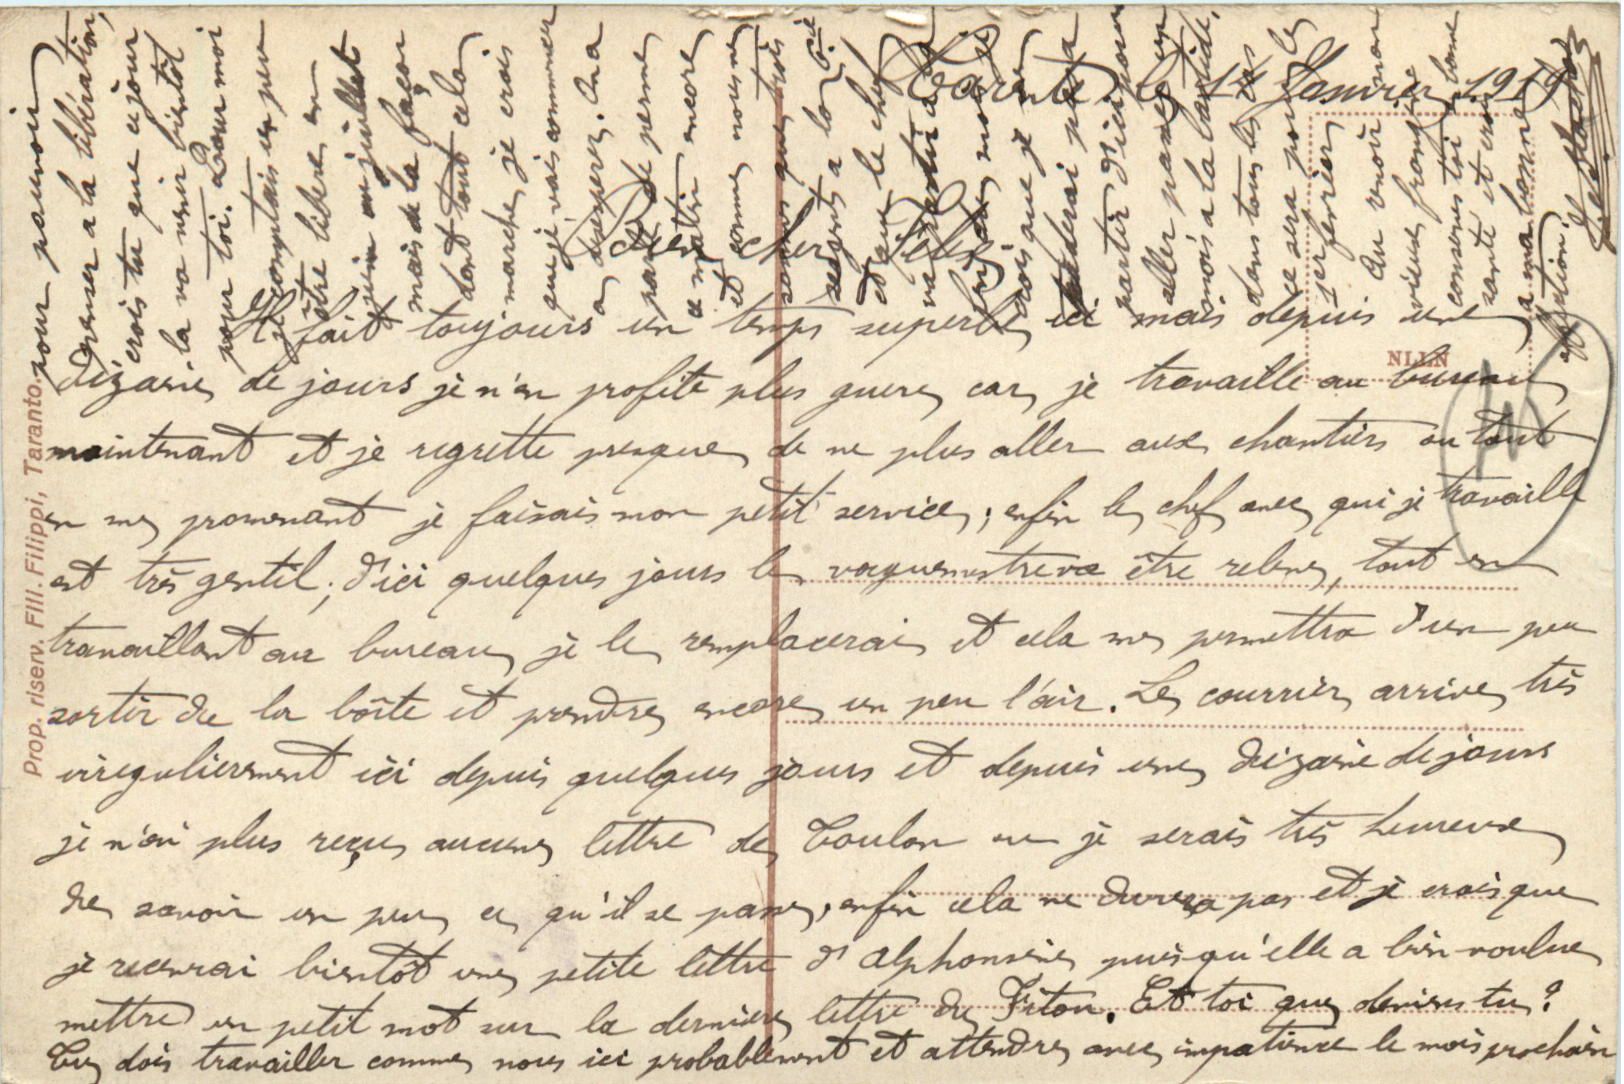 Tarente, le 14 Janvier 1919
Bien cher Félix,
Il fait toujours un temps superbe ici mais depuis une
dizaine de jours je n'en profite plus guere, car je travaille au bureau
maintenant et je regrette presque de ne plus aller aux chantiers ou tout
en me promenant je faisais mon petit service; enfin le chef avec qui je travaille
est très gentil; d'ici quelques jours le vaguemestre va être releve, tout en
travaillant au bureau, je le remplacerai et cela me permettra d'un peu
sortir de la boîte et prendre encore un peu l'air. Le courrier arrive très
irregulierement ici depuis quelques jours et depuis une dizaine de jours
je n'ai plus reçu aucune lettre de Toulon ou je serais très heureux
de savoir un peu ce qu'il se passe, enfin cela ne durera pas et je crois que
je recevrai bientôt une petite lettre d'Alphonsine puisqu'elle a bien voulue
mettre un petit mot sur la derniere lettre de Titou. Et toi que deviens tu?
Tu dois travailler comme nous ici probablement et attendre avec impatience le mois prochain
pour pouvoir
penser a la libération,
crois tu que ce jour
la va venir bientôt
pour toi. Pour moi
je comptais un peu
être libéré en
juin ou juillet
mais de la façon
dont tout cela
marche je crois
que je vais commencer
a desesperer. On a
parlé de perme
ce matin encore
et comme nous ne
sommes que trois
a la Cie
et que le chef
va partir
mois
crois que je ne
tarderai pas a
partir d'ici pour
aller passer un
mois a la bastide,
dans tous les cas
ce sera pour le
1er fevrier
Au revoir mon
vieux frangin
conserves toi en bonne
santé et crois
a ma bonne
affection.
NLLN
Prop. riserv. Flli. Filippi, Taranto.